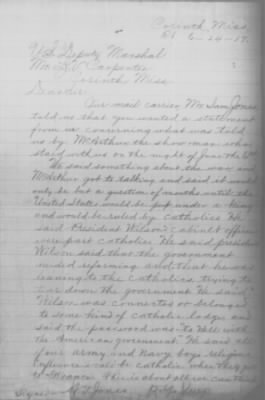 Corinth Miss
Rt 6-24-17.
U S Deputy Marshal
Mr. Carpenter
Corinth Miss
Dear Sir
Our mail carrier Mr Sam Jones
told us that you wanted a statement
from us concerning what was told
us by McArthur the show man who
staid with us on the night of June the
He said something about the war and
McArthur got to talking and said it would
only be but a question of months until the
United States would be put under a King
and would be ruled by catholics He
said President Wilson's cabinet officers
were part catholics He said president
Wilson said that the government
need reforming and that he was
leaning to the catholics, trying to
tear down the government He said
Wilson was connected or belonged
to some kind of catholic lodge and
said the password was To Hell with
the American government. He said all
of our army and Navy boys religious
influence would be catholic when they got
to France This is about all we can
Signed Jones